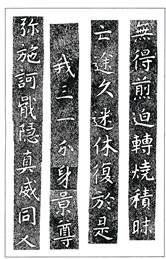 無得煎迫轉燒積時
亡途久迷休復於是
我三一分身景尊
弥施訶戢隱真威同人